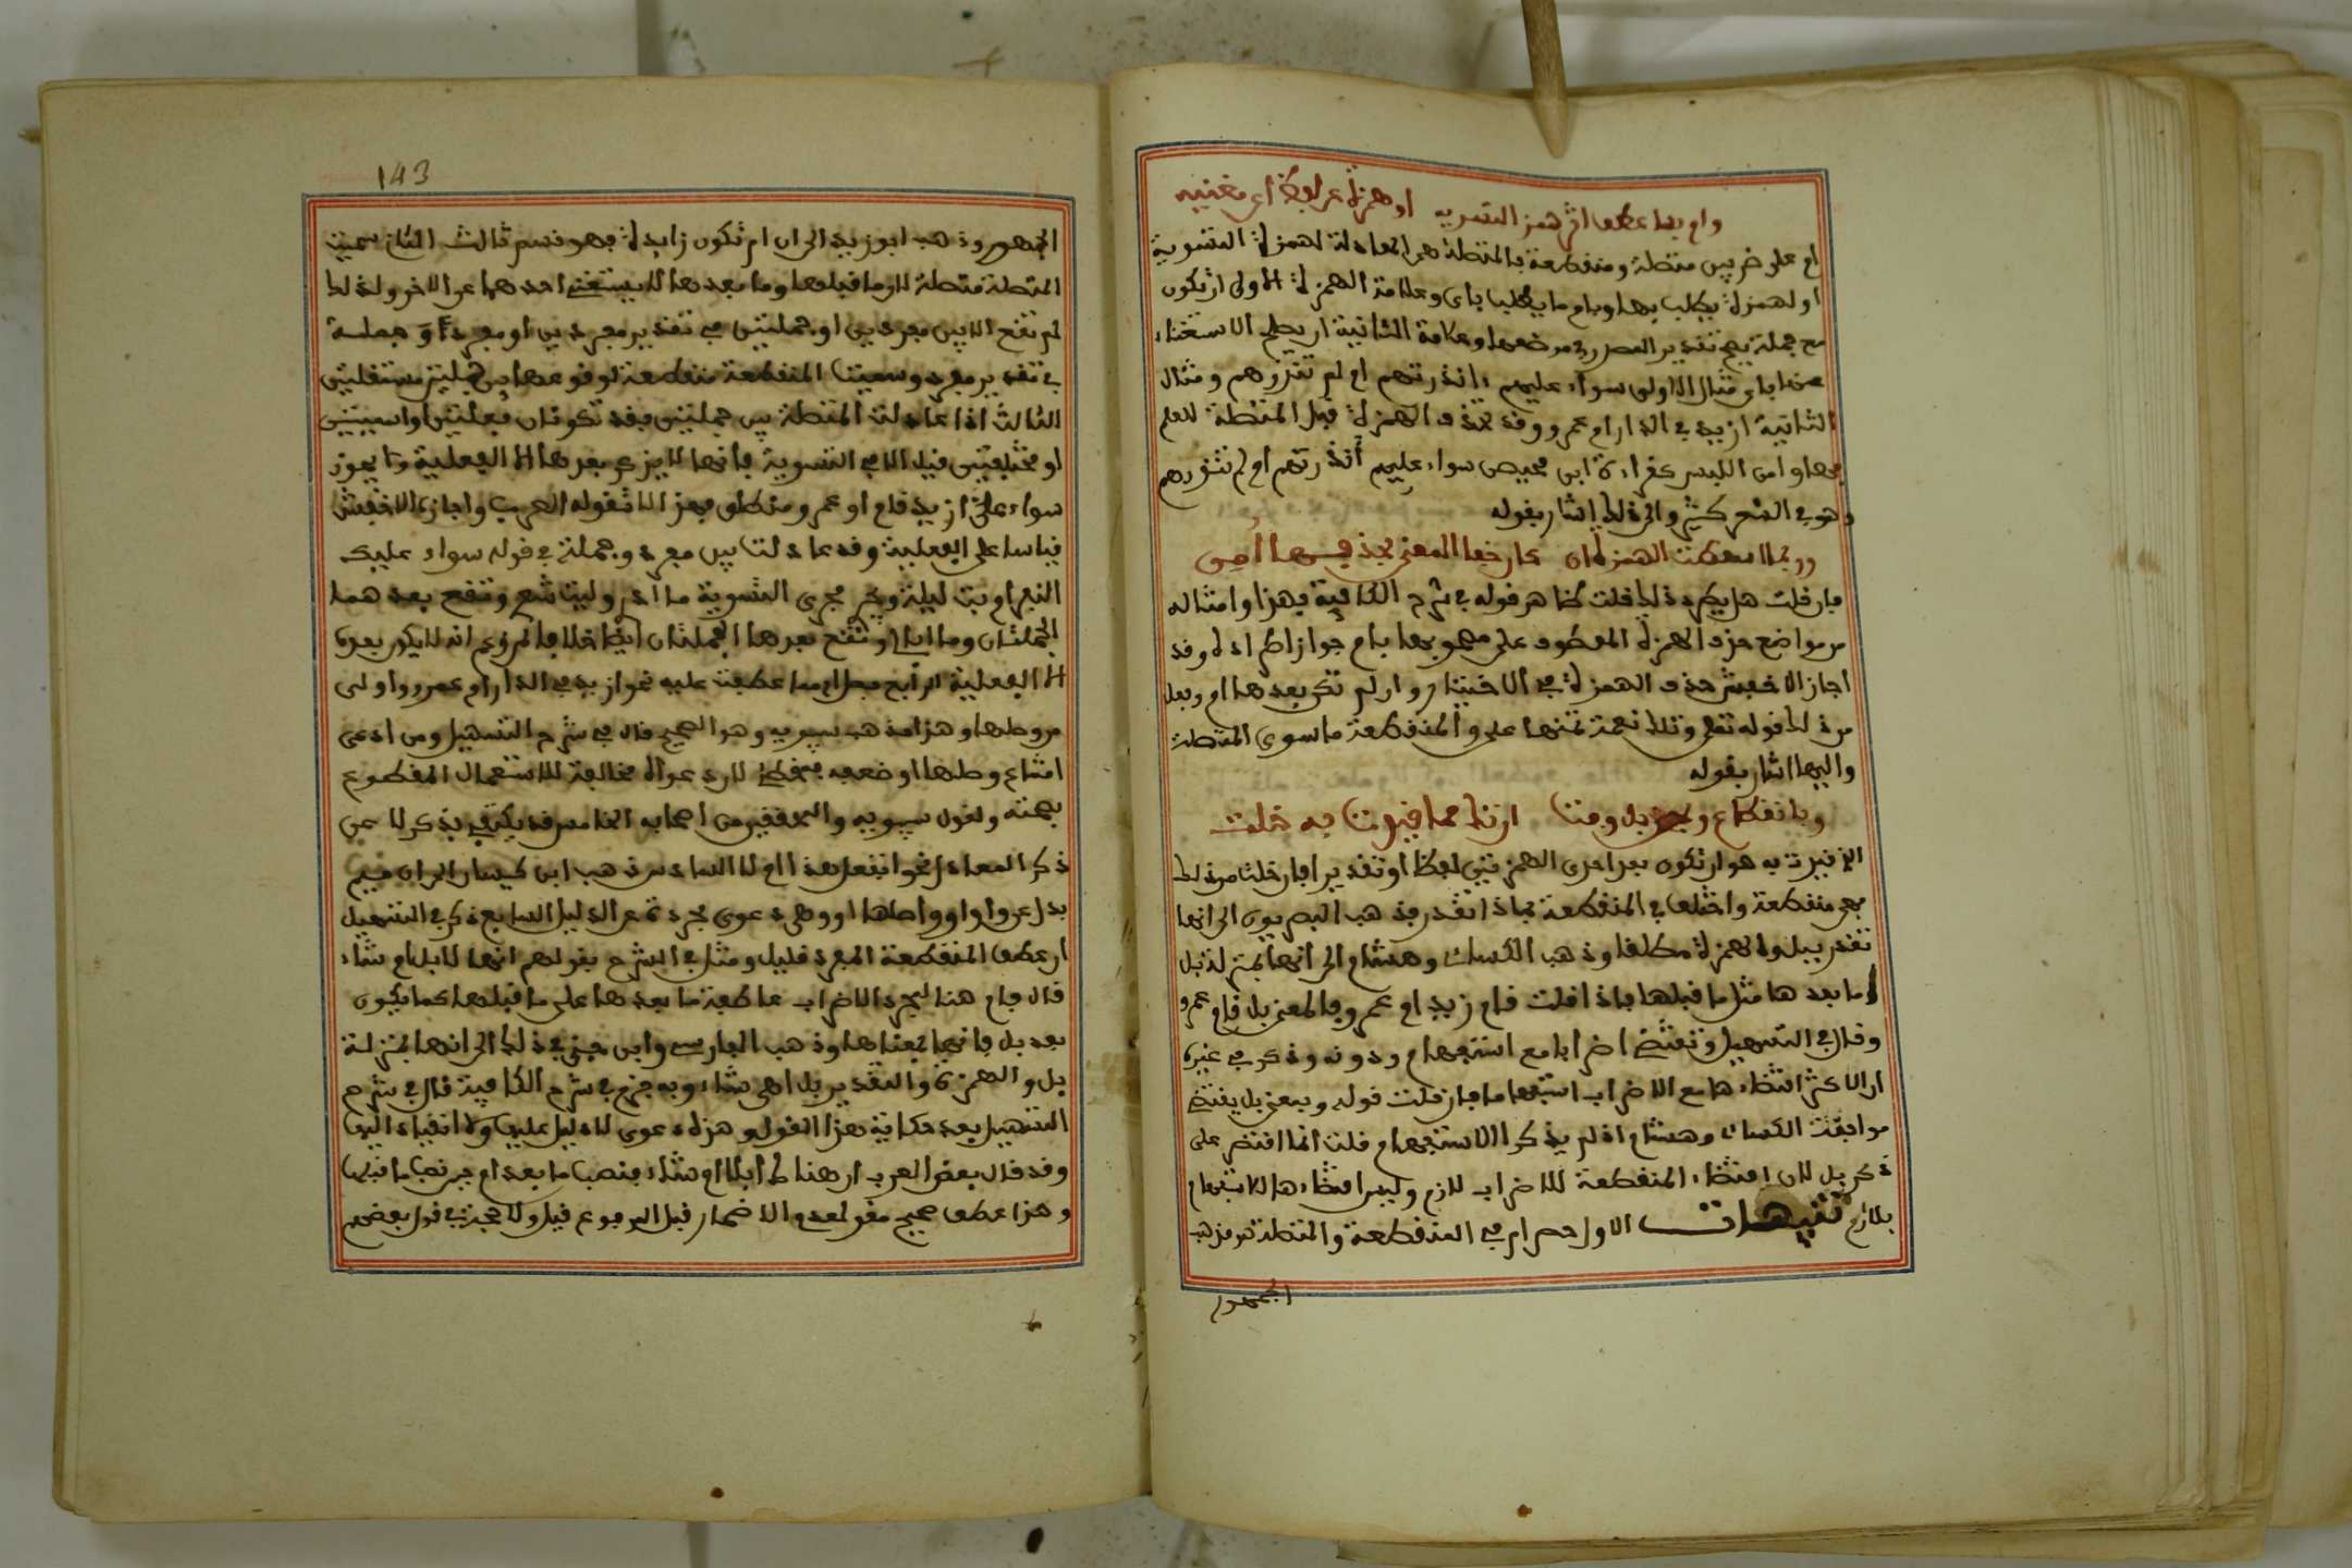 وام بها اعطف اثر همز التسويه او همزة عن لفظ اي مغنيه
ام على ضربين متصلة ومنقطعة فالمتصلة هي المعادلة لهمزة التسوية
او لهمزة يطلب بها وبام ما يطلب باي وعلامة الهمزة الاولى ان تكون
مع جملة يصح تقدير المصدر في موضعها وعلامة الثانية ان يصلح الاستغناء
عنها باي مثال الاولى سواء عليهم ءانذرتهم ام لم تنذرهم ومثال
الثانية ازيد في الدار ام عمرو وقد تحذف الهمزة قبل المتصلة للعلم
بها وامن اللبس كقراءة ابن محيصن سواء عليهم أنذرتهم ام لم تنذرهم
وهو في الشعر كثير والى ذلك اشار بقوله
وربما اسقطت الهمزة ان كان خفا المعنى بحذفها أمن
فان قلت هل يطرد ذلك قلت ظاهر قوله في شرح الكافية فهذا وامثاله
من مواضع حذف الهمزة المعطوف على مصحوبها بام جواز اطراده وقد
اجاز الاخفش حذف الهمزة في الاختيار وان لم تكن بعدها ام وجعل
من ذلك قوله تعلى وتلك نعمة تمنها علي والمنقطعة ما سوى المتصلة
واليها اشار بقوله
وبانقطاع وبمعنى بل وفت ان تك مما قيدت به خلت
الذي قيدت به هو ان تكون بعد احدى الهمزتين لفظا او تقديرا فان خلت من ذلك
فهي منقطعة واختلف في المنقطعة بماذا تقدر فذهب البصريون الى انها
تقدر ببل والهمزة مطلقا وذهب الكسائى وهشام الى انها بمنزلة بل
وما بعدها مثل ما قبلها فاذا قلت قام زيد ام عمرو فالمعنى بل قام عمرو
وقال في التسهيل وتقتضي اضرابا مع استفهام ودونه وذكر في غيره
ان الاكثر اقتضاءها مع الاضراب استفهاما فان قلت قوله وبمعنى بل يقتضي
موافقة الكسائى وهشام اذ لم يذكر الاستفهام قلت انما اقتصر على
ذكر بل لان اقتضاء المنقطعة للاضراب لازم وليس اقتضاءها للاستفهام
بلازم تنبيهات الاول حصر ام في المنقطعة والمتصلة هو مذهب
الجمهور
143
الجمهور وذهب ابو زيد الى ان ام تكون زايدة فهو قسم ثالث الثاني سميت
المتصلة متصلة لان ما قبلها وما بعدها لا يستغني احدهما عن الاخر ولذلك
لم تقع الا بين مفردين او جملتين في تقدير مفردين او مفرد وجملة
في تقدير مفرد وسميت المنقطعة منقطعة لوقوعها بين جملتين مستقلتين
الثالث اذا عادلت المتصلة بين جملتين فقد تكونان فعليتين او اسميتين
او مختلفتين قيل الا في التسوية فانها لا يذكر بعدها الا الفعلية ولا يجوز
سواء علي ازيد قام او عمرو منطلق فهذا لا تقوله العرب واجازه الاخفش
قياسا على الفعلية وقد عادلت بين مفرد وجملة في قوله سواء عليك
النفر ام بت ليلة ويجري مجرى التسوية ما ادري وليت شعري وتقع بعدهما
الجملتان وما ابالي وتقع بعدها الجملتان ايضا خلافا لمن زعم انه لا يكون بعدها
الا الفعلية الرابع فصل ام مما عطفت عليه نحو ازيد في الدار ام عمرو اولى
من وصلها وهذا مذهب سيبويه وهو الصحيح قال في شرح التسهيل ومن ادعى
امتناع وصلها او ضعفه فمخطئ لان دعواه مخالفة للاستعمال المقطوع
بصحته ولقول سيبويه والمحققين من اصحابه الخامس قد يكتفى بذكر لا عن
ذكر المعادل نحو اتفعل هذا ام لا السادس ذهب ابن كيسان الى ان ميم
بدل عن واو واصلها او وهي دعوى مجردة عن الدليل السابع ذكر في التسهيل
ان عطف المنقطعة المفرد قليل ومثل في الشرح بقولهم انها لابل ام شاء
قال فام هنا لمجرد الاضراب عاطفة ما بعدها على ما قبلها كما يكون
بعد بل فانها بمعناها وذهب الفارسي وابن جني في ذلك الى انها بمنزلة
بل والهمزة والتقدير بل اهي شاء وبه جزم في شرح الكافية قال في شرح
التسهيل بعد حكاية هذا القول وهذه دعوى لا دليل عليها ولا انقياد اليها
وقد قال بعض العرب ان هناك لابلا ام شاء فنصب ما بعد ام حين نصب ما قبلها
وهذا عطف صحيح مقو لعدم الاضمار قبل المرفوع قيل ولا حجة في قول بعضهم